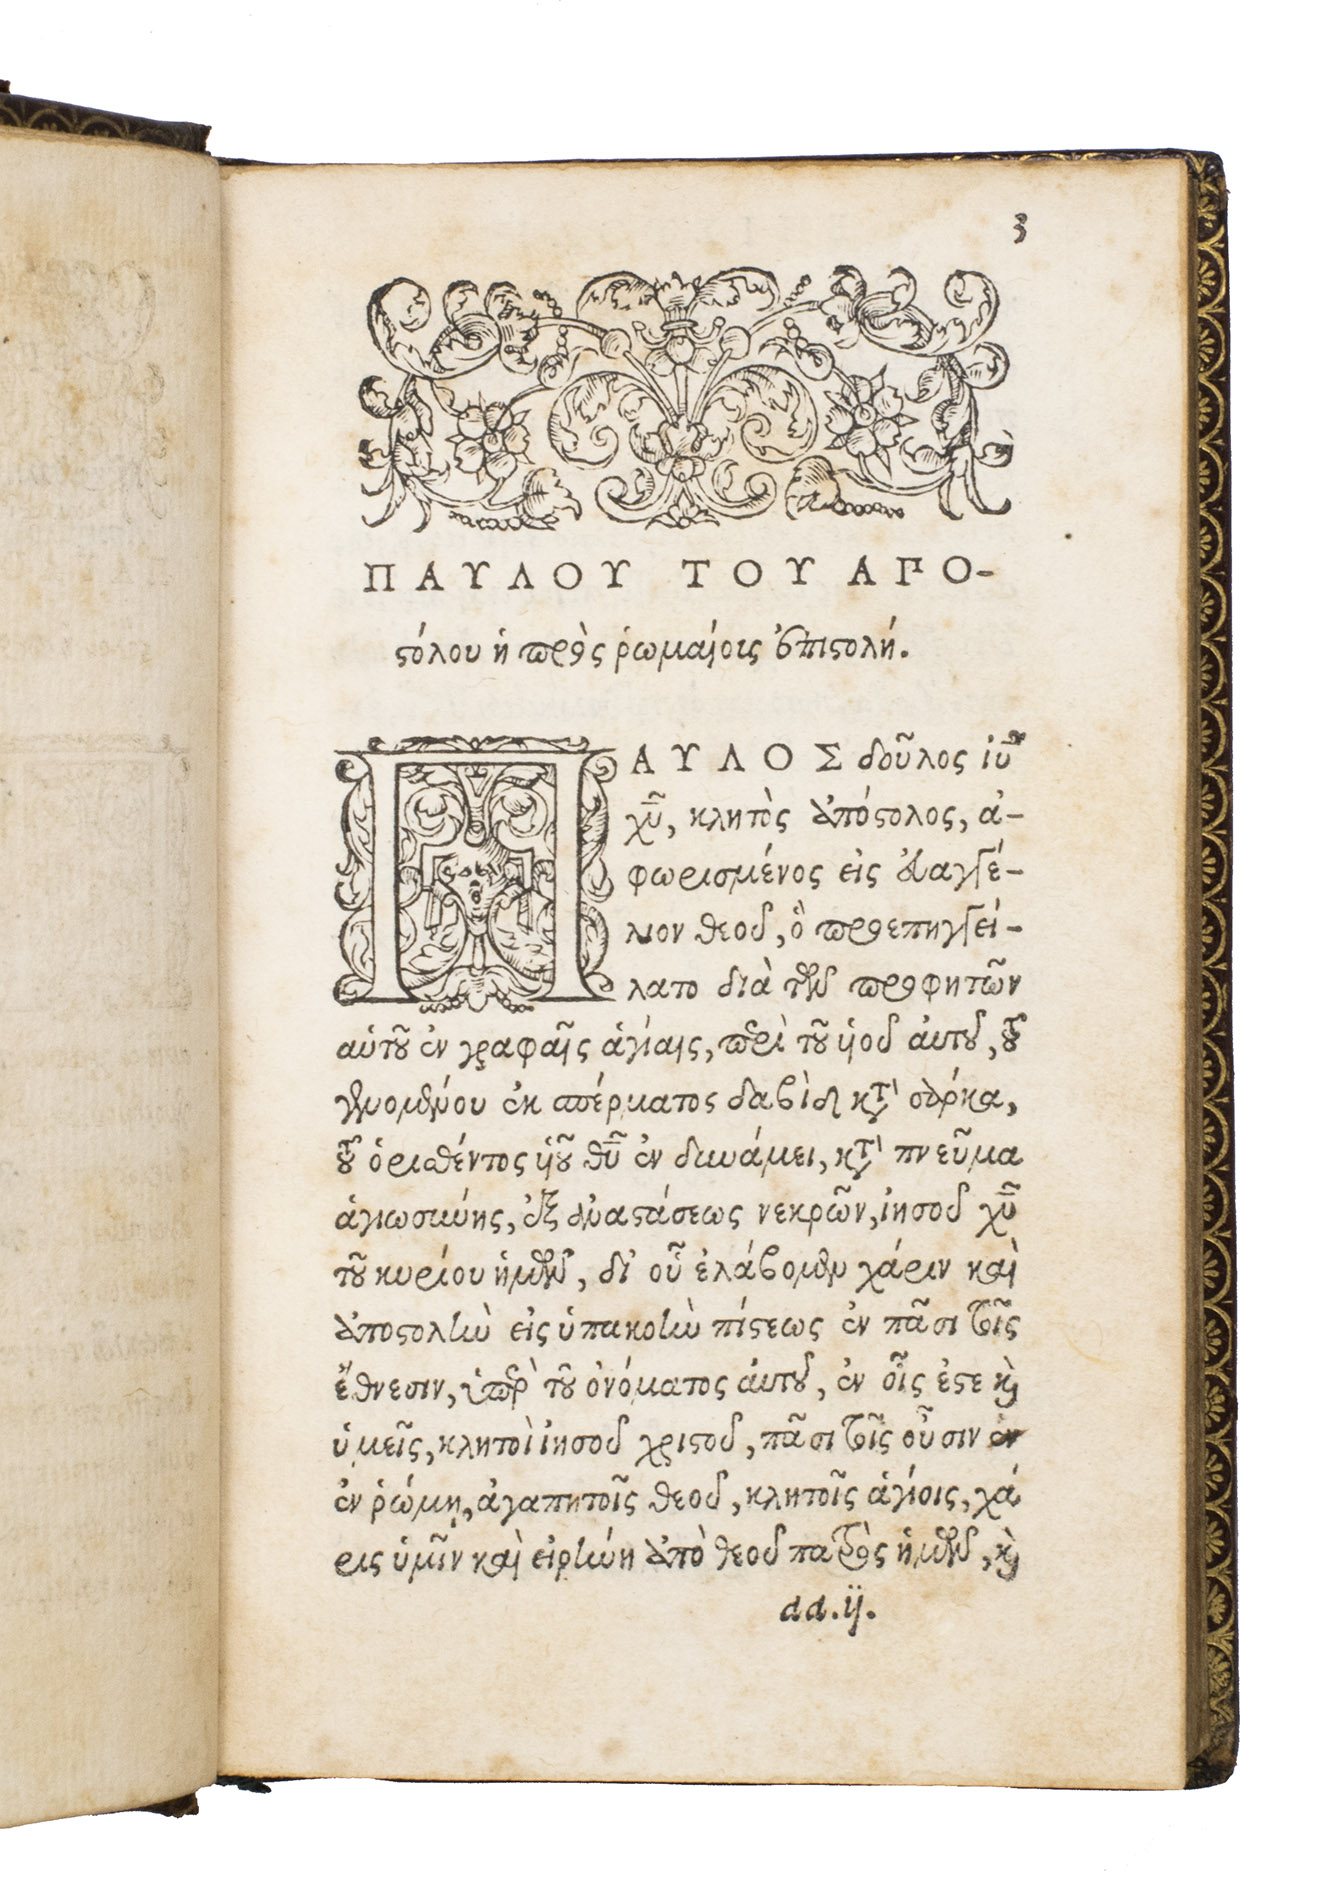 3
ΠΑΥΛΟΥ ΤΟΥ ΑΠΟ-
ϛόλου ἡ πρὸς ῥωμαίοις ἐπιϛολή.
ΠΑΥΛΟΣ δοῦλος ἰῦ
χῦ, κλητὸς ἀπόϛολος, ἀ-
φωρισμένος εἰς εὐαγγέ-
λιον θεοῦ, ὃ προεπηγγεί-
λατο διὰ τῶν προφητῶν
αὐτοῦ ἐν γραφαῖς ἁγίαις, περὶ τοῦ ὑιοῦ ἀυτοῦ, τοῦ
γενομένου ἐκ σπέρματος δαβὶδ κατὰ σάρκα,
τοῦ ὁρισθέντος ὑιοῦ θῦ ἐν δυνάμει, κατὰ πνεῦμα
ἁγιωσύνης, ἐξ ἀναϛάσεως νεκρῶν, ἰησοῦ χῦ
τοῦ κυρίου ἡμῶν, δι' οὗ ἐλάβομεν χάριν καὶ
ἀποϛολὴν εἰς ὑπακοὴν πίϛεως ἐν πᾶσι τοῖς
ἔθνεσιν, ὑπὲρ τοῦ ὀνόματος ἀυτοῦ, ἐν οἷς ἐϛε κὶ
ὑμεῖς, κλητοὶ ἰησοῦ χριϛοῦ, πᾶσι τοῖς οὖσιν ἐν
ἐν ῥώμῃ, ἀγαπητοῖς θεοῦ, κλητοῖς ἁγίοις, χά
ρις ὑμῖν καὶ εἰρήνη ἀπὸ θεοῦ πατρὸς ἡμῶν, κὶ
dd.ij.